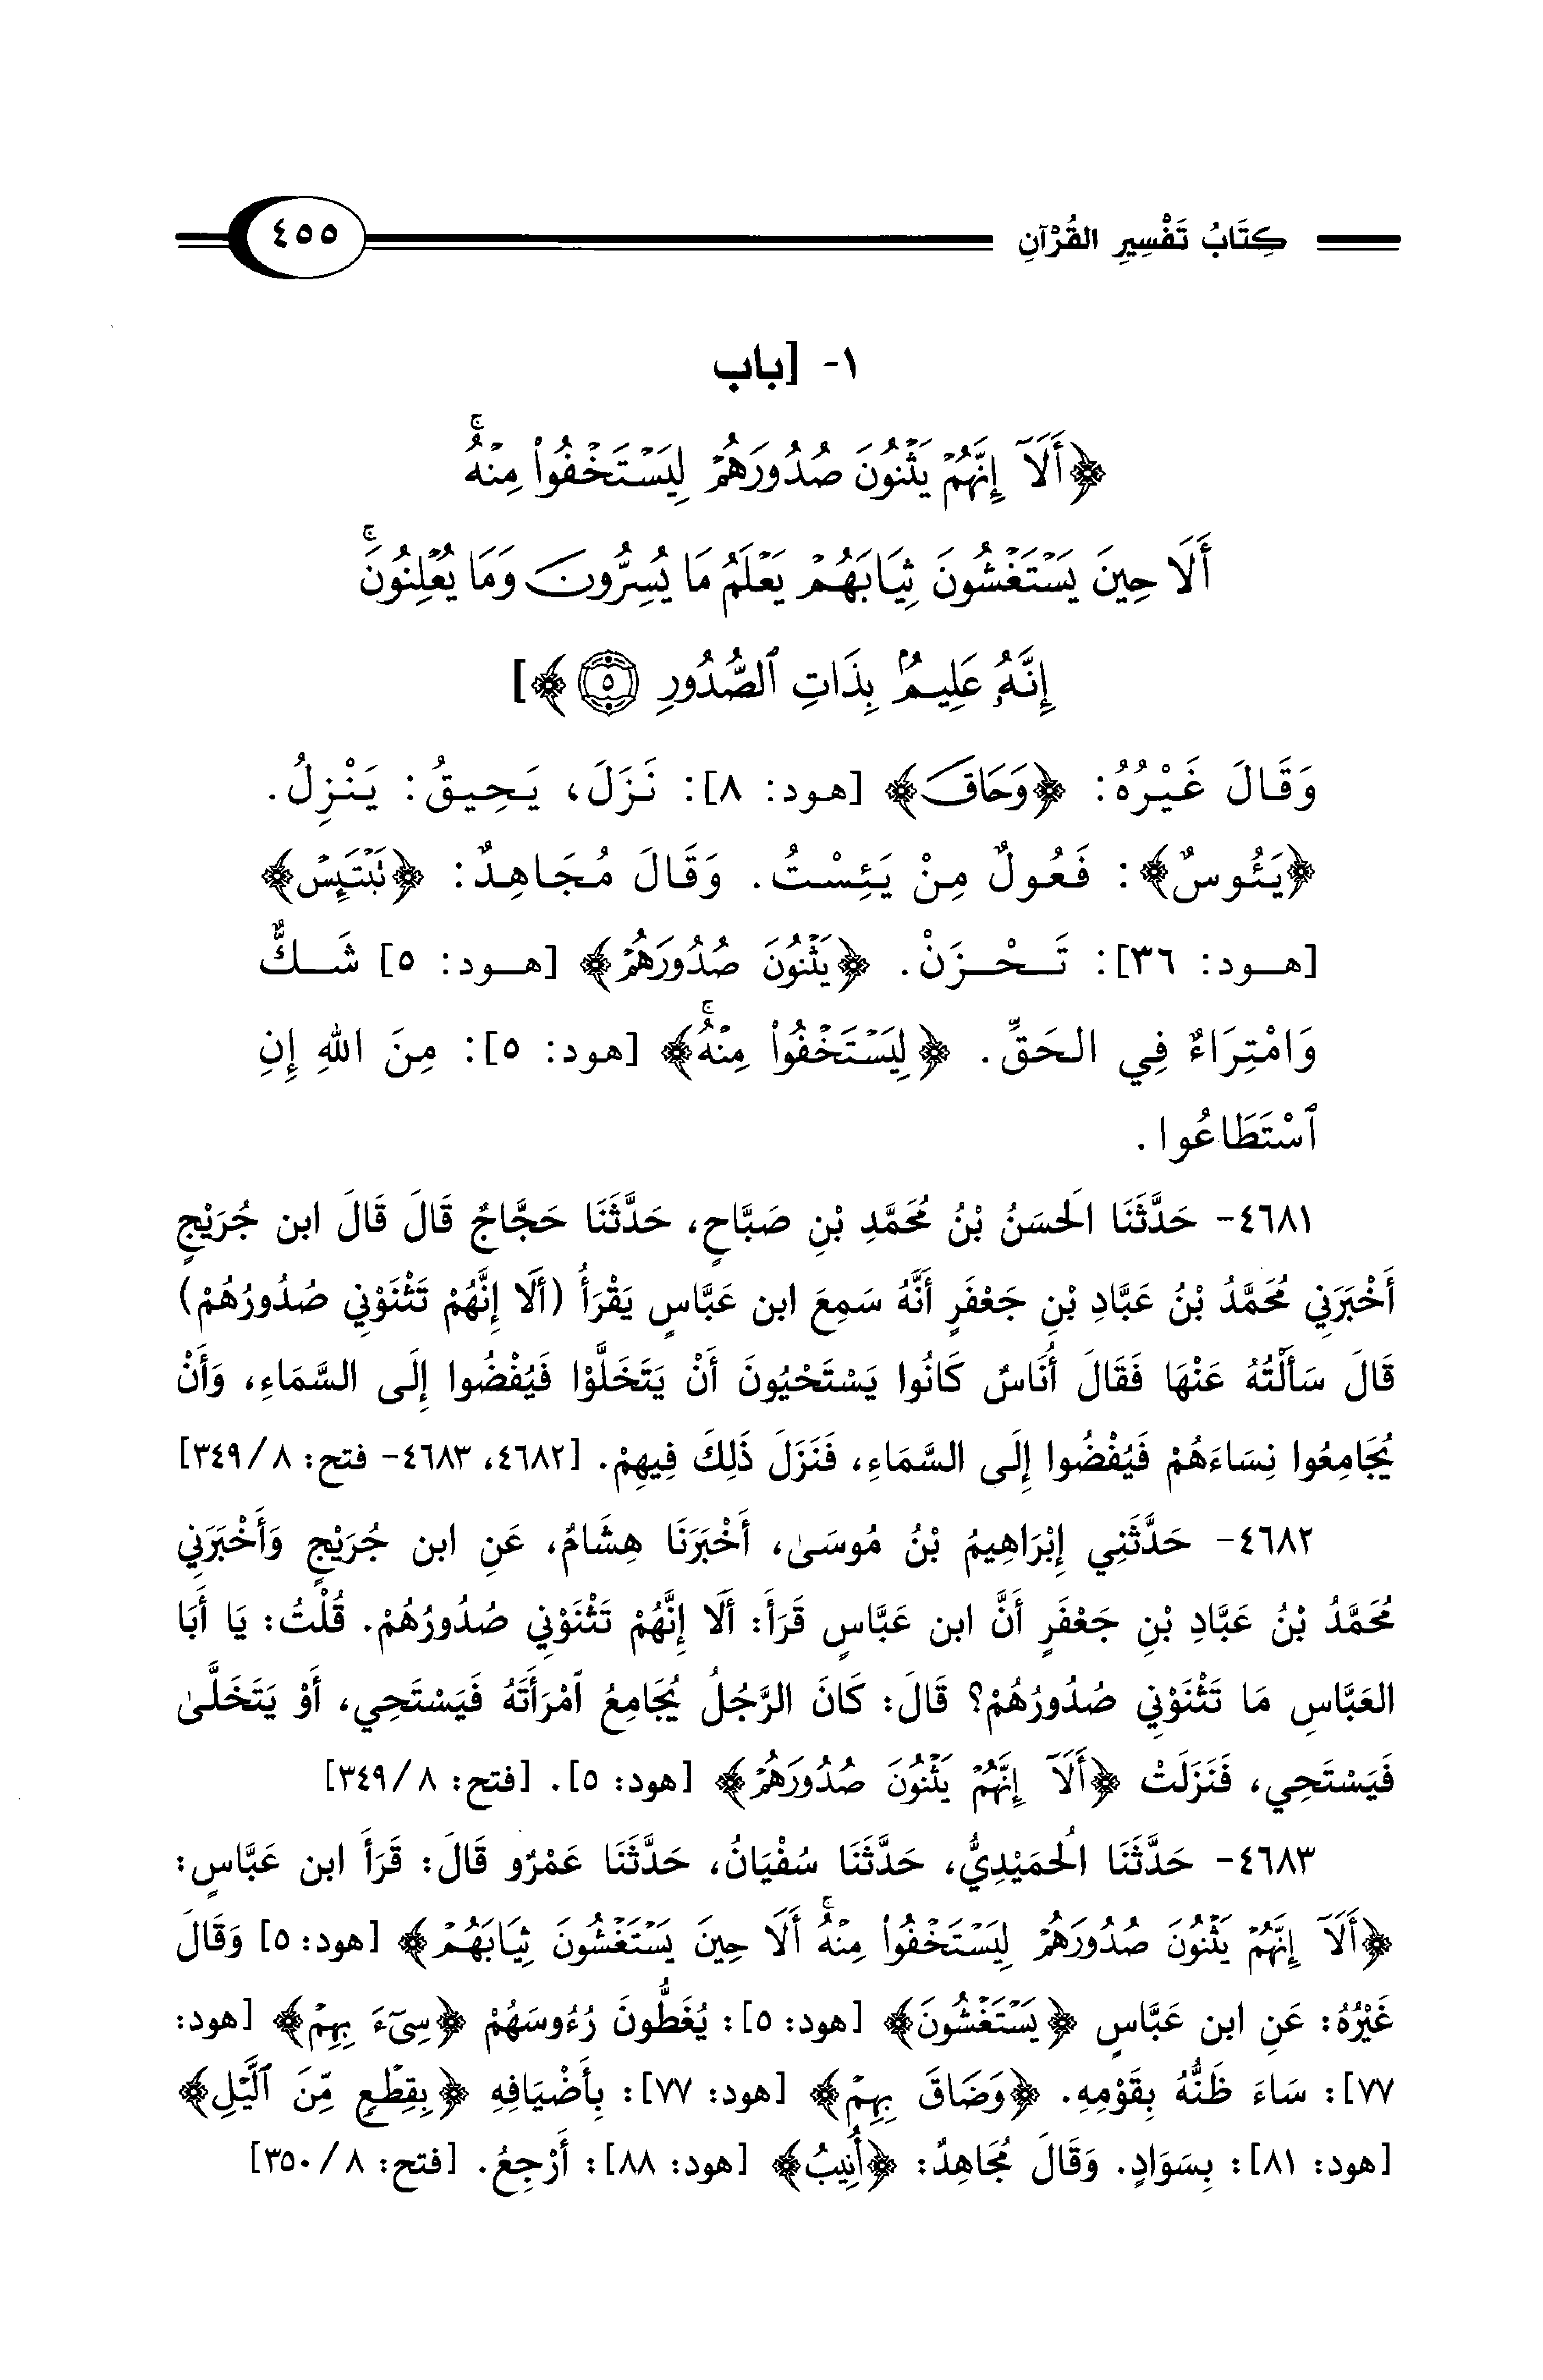 كِتَابُ تَفْسِيرِ القُرْآنِ ٤٥٥
١- [باب
﴿أَلَآ إِنَّهُمْ يَثْنُونَ صُدُورَهُمْ لِيَسْتَخْفُوا۟ مِنْهُ ۚ
أَلَا حِينَ يَسْتَغْشُونَ ثِيَابَهُمْ يَعْلَمُ مَا يُسِرُّونَ وَمَا يُعْلِنُونَ ۚ
إِنَّهُۥ عَلِيمٌۢ بِذَاتِ ٱلصُّدُورِ ٥﴾]
وَقَالَ غَيْرُهُ: ﴿وَحَاقَ﴾ [هود: ٨]: نَزَلَ، يَحِيقُ: يَنْزِلُ.
﴿يَئُوسٌ﴾: فَعُولٌ مِنْ يَئِسْتُ. وَقَالَ مُجَاهِدٌ: ﴿تَبْتَئِسْ﴾
[هود: ٣٦]: تَحْزَنْ. ﴿يَثْنُونَ صُدُورَهُمْ﴾ [هود: ٥] شَكٌّ
وَامْتِرَاءٌ فِي الحَقِّ. ﴿لِيَسْتَخْفُوا۟ مِنْهُ ۚ﴾ [هود: ٥]: مِنَ اللهِ إِنِ
ٱسْتَطَاعُوا.
٤٦٨١- حَدَّثَنَا الَحسَنُ بْنُ مُحَمَّدِ بْنِ صَبَّاحٍ، حَدَّثَنَا حَجَّاجٌ قَالَ قَالَ ابن جُرَيْجٍ
أَخْبَرَنِي مُحَمَّدُ بْنُ عَبَّادِ بْنِ جَعْفَرٍ أَنَّهُ سَمِعَ ابن عَبَّاسٍ يَقْرَأُ (أَلَا إِنَّهُمْ تَثْنَوْنِي صُدُورُهُمْ)
قَالَ سَأَلْتُهُ عَنْهَا فَقَالَ أُنَاسٌ كَانُوا يَسْتَحْيُونَ أَنْ يَتَخَلَّوْا فَيُفْضُوا إِلَى السَّمَاءِ، وَأَنْ
يُجَامِعُوا نِسَاءَهُمْ فَيُفْضُوا إِلَى السَّمَاءِ، فَنَزَلَ ذَلِكَ فِيهِمْ. [٤٦٨٢، ٤٦٨٣- فتح: ٨/٣٤٩]
٤٦٨٢- حَدَّثَنِي إِبْرَاهِيمُ بْنُ مُوسَىٰ، أَخْبَرَنَا هِشَامٌ، عَنِ ابن جُرَيْجٍ وَأَخْبَرَنِي
مُحَمَّدُ بْنُ عَبَّادِ بْنِ جَعْفَرٍ أَنَّ ابن عَبَّاسٍ قَرَأَ: أَلَا إِنَّهُمْ تَثْنَوْنِي صُدُورُهُمْ. قُلْتُ: يَا أَبَا
العَبَّاسِ مَا تَثْنَوْنِي صُدُورُهُمْ؟ قَالَ: كَانَ الرَّجُلُ يُجَامِعُ ٱمْرَأَتَهُ فَيَسْتَحِي، أَوْ يَتَخَلَّىٰ
فَيَسْتَحِي، فَنَزَلَتْ ﴿أَلَآ إِنَّهُمْ يَثْنُونَ صُدُورَهُمْ﴾ [هود: ٥]. [فتح: ٨/٣٤٩]
٤٦٨٣- حَدَّثَنَا الُحمَيْدِيُّ، حَدَّثَنَا سُفْيَانُ، حَدَّثَنَا عَمْرٌو قَالَ: قَرَأَ ابن عَبَّاسٍ:
﴿أَلَآ إِنَّهُمْ يَثْنُونَ صُدُورَهُمْ لِيَسْتَخْفُوا۟ مِنْهُ ۚ أَلَا حِينَ يَسْتَغْشُونَ ثِيَابَهُمْ﴾ [هود: ٥] وَقَالَ
غَيْرُهُ: عَنِ ابن عَبَّاسٍ ﴿يَسْتَغْشُونَ﴾ [هود: ٥]: يُغَطُّونَ رُءُوسَهُمْ ﴿سِيٓءَ بِهِمْ﴾ [هود:
٧٧]: سَاءَ ظَنُّهُ بِقَوْمِهِ. ﴿وَضَاقَ بِهِمْ﴾ [هود: ٧٧]: بِأَضْيَافِهِ ﴿بِقِطْعٍ مِّنَ ٱلَّيْلِ﴾
[هود: ٨١]: بِسَوَادٍ. وَقَالَ مُجَاهِدٌ: ﴿أُنِيبُ﴾ [هود: ٨٨]: أَرْجِعُ. [فتح: ٨/٣٥٠]